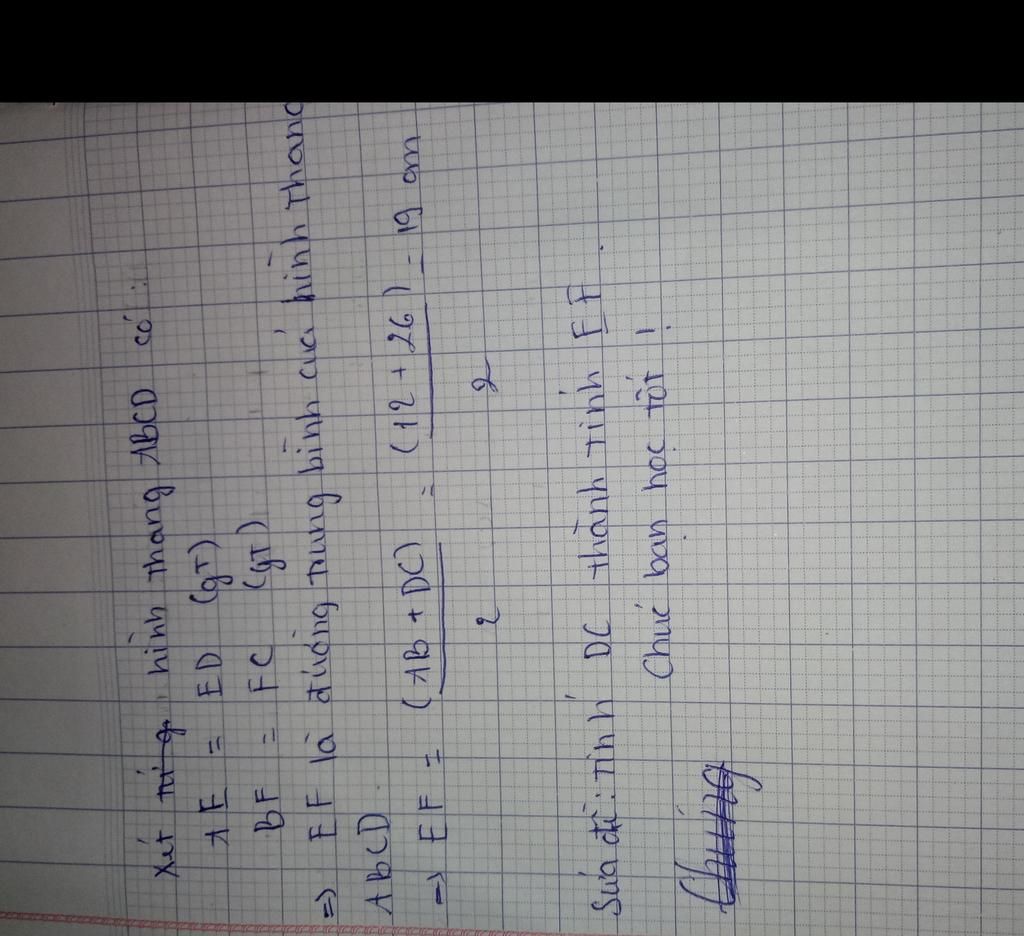 Xét hình thang ABCD có:
AE = ED (gT)
BF = FC (gT)
=> EF là đường trung bình của hình thang
ABCD
=> EF = (AB + DC)/2 = (12 + 26)/2 = 19 cm
Sửa đề: tính DC thành tính EF.
Chúc bạn học tốt!